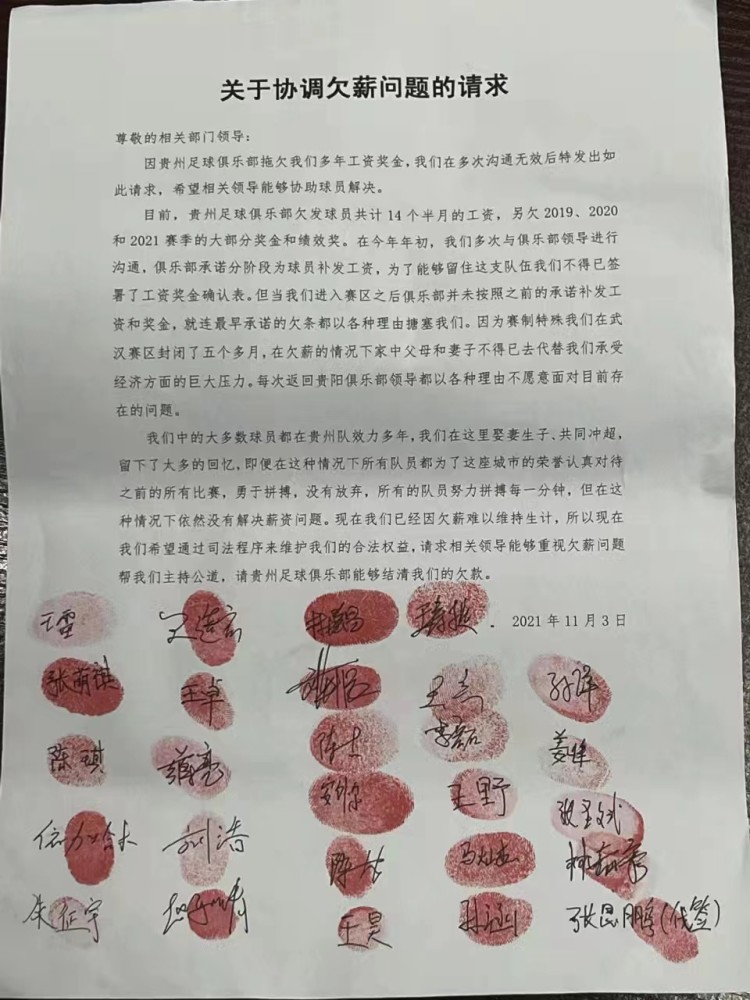 关于协调欠薪问题的请求
尊敬的相关部门领导：
因贵州足球俱乐部拖欠我们多年工资奖金，我们在多次沟通无效后特发出如
此请求，希望相关领导能够协助球员解决。
目前，贵州足球俱乐部欠发球员共计14个半月的工资，另欠2019、2020
和2021赛季的大部分奖金和绩效奖。在今年年初，我们多次与俱乐部领导进行
沟通，俱乐部承诺分阶段为球员补发工资，为了能够留住这支队伍我们不得已签
署了工资奖金确认表。但当我们进入赛区之后俱乐部并未按照之前的承诺补发工
资和奖金，就连最早承诺的欠条都以各种理由搪塞我们。因为赛制特殊我们在武
汉赛区封闭了五个多月，在欠薪的情况下家中父母和妻子不得已去代替我们承受
经济方面的巨大压力。每次返回贵阳俱乐部领导都以各种理由不愿意面对目前存
在的问题。
我们中的大多数球员都在贵州队效力多年，我们在这里娶妻生子、共同冲超，
留下了太多的回忆，即便在这种情况下所有队员都为了这座城市的荣誉认真对待
之前的所有比赛，勇于拼搏，没有放弃，所有的队员努力拼搏每一分钟，但在这
种情况下依然没有解决薪资问题。现在我们已经因欠薪难以维持生计，所以现在
我们希望通过司法程序来维护我们的合法权益，请求相关领导能够重视欠薪问题
帮我们主持公道，请贵州足球俱乐部能够结清我们的欠款。
2021年11月3日
王雪
张萌琪 王卓 孙洋
陈琪 蒋亮 李磊 姜峰
刘浩 王野
朱征宇 王昊 张昆鹏(代签)